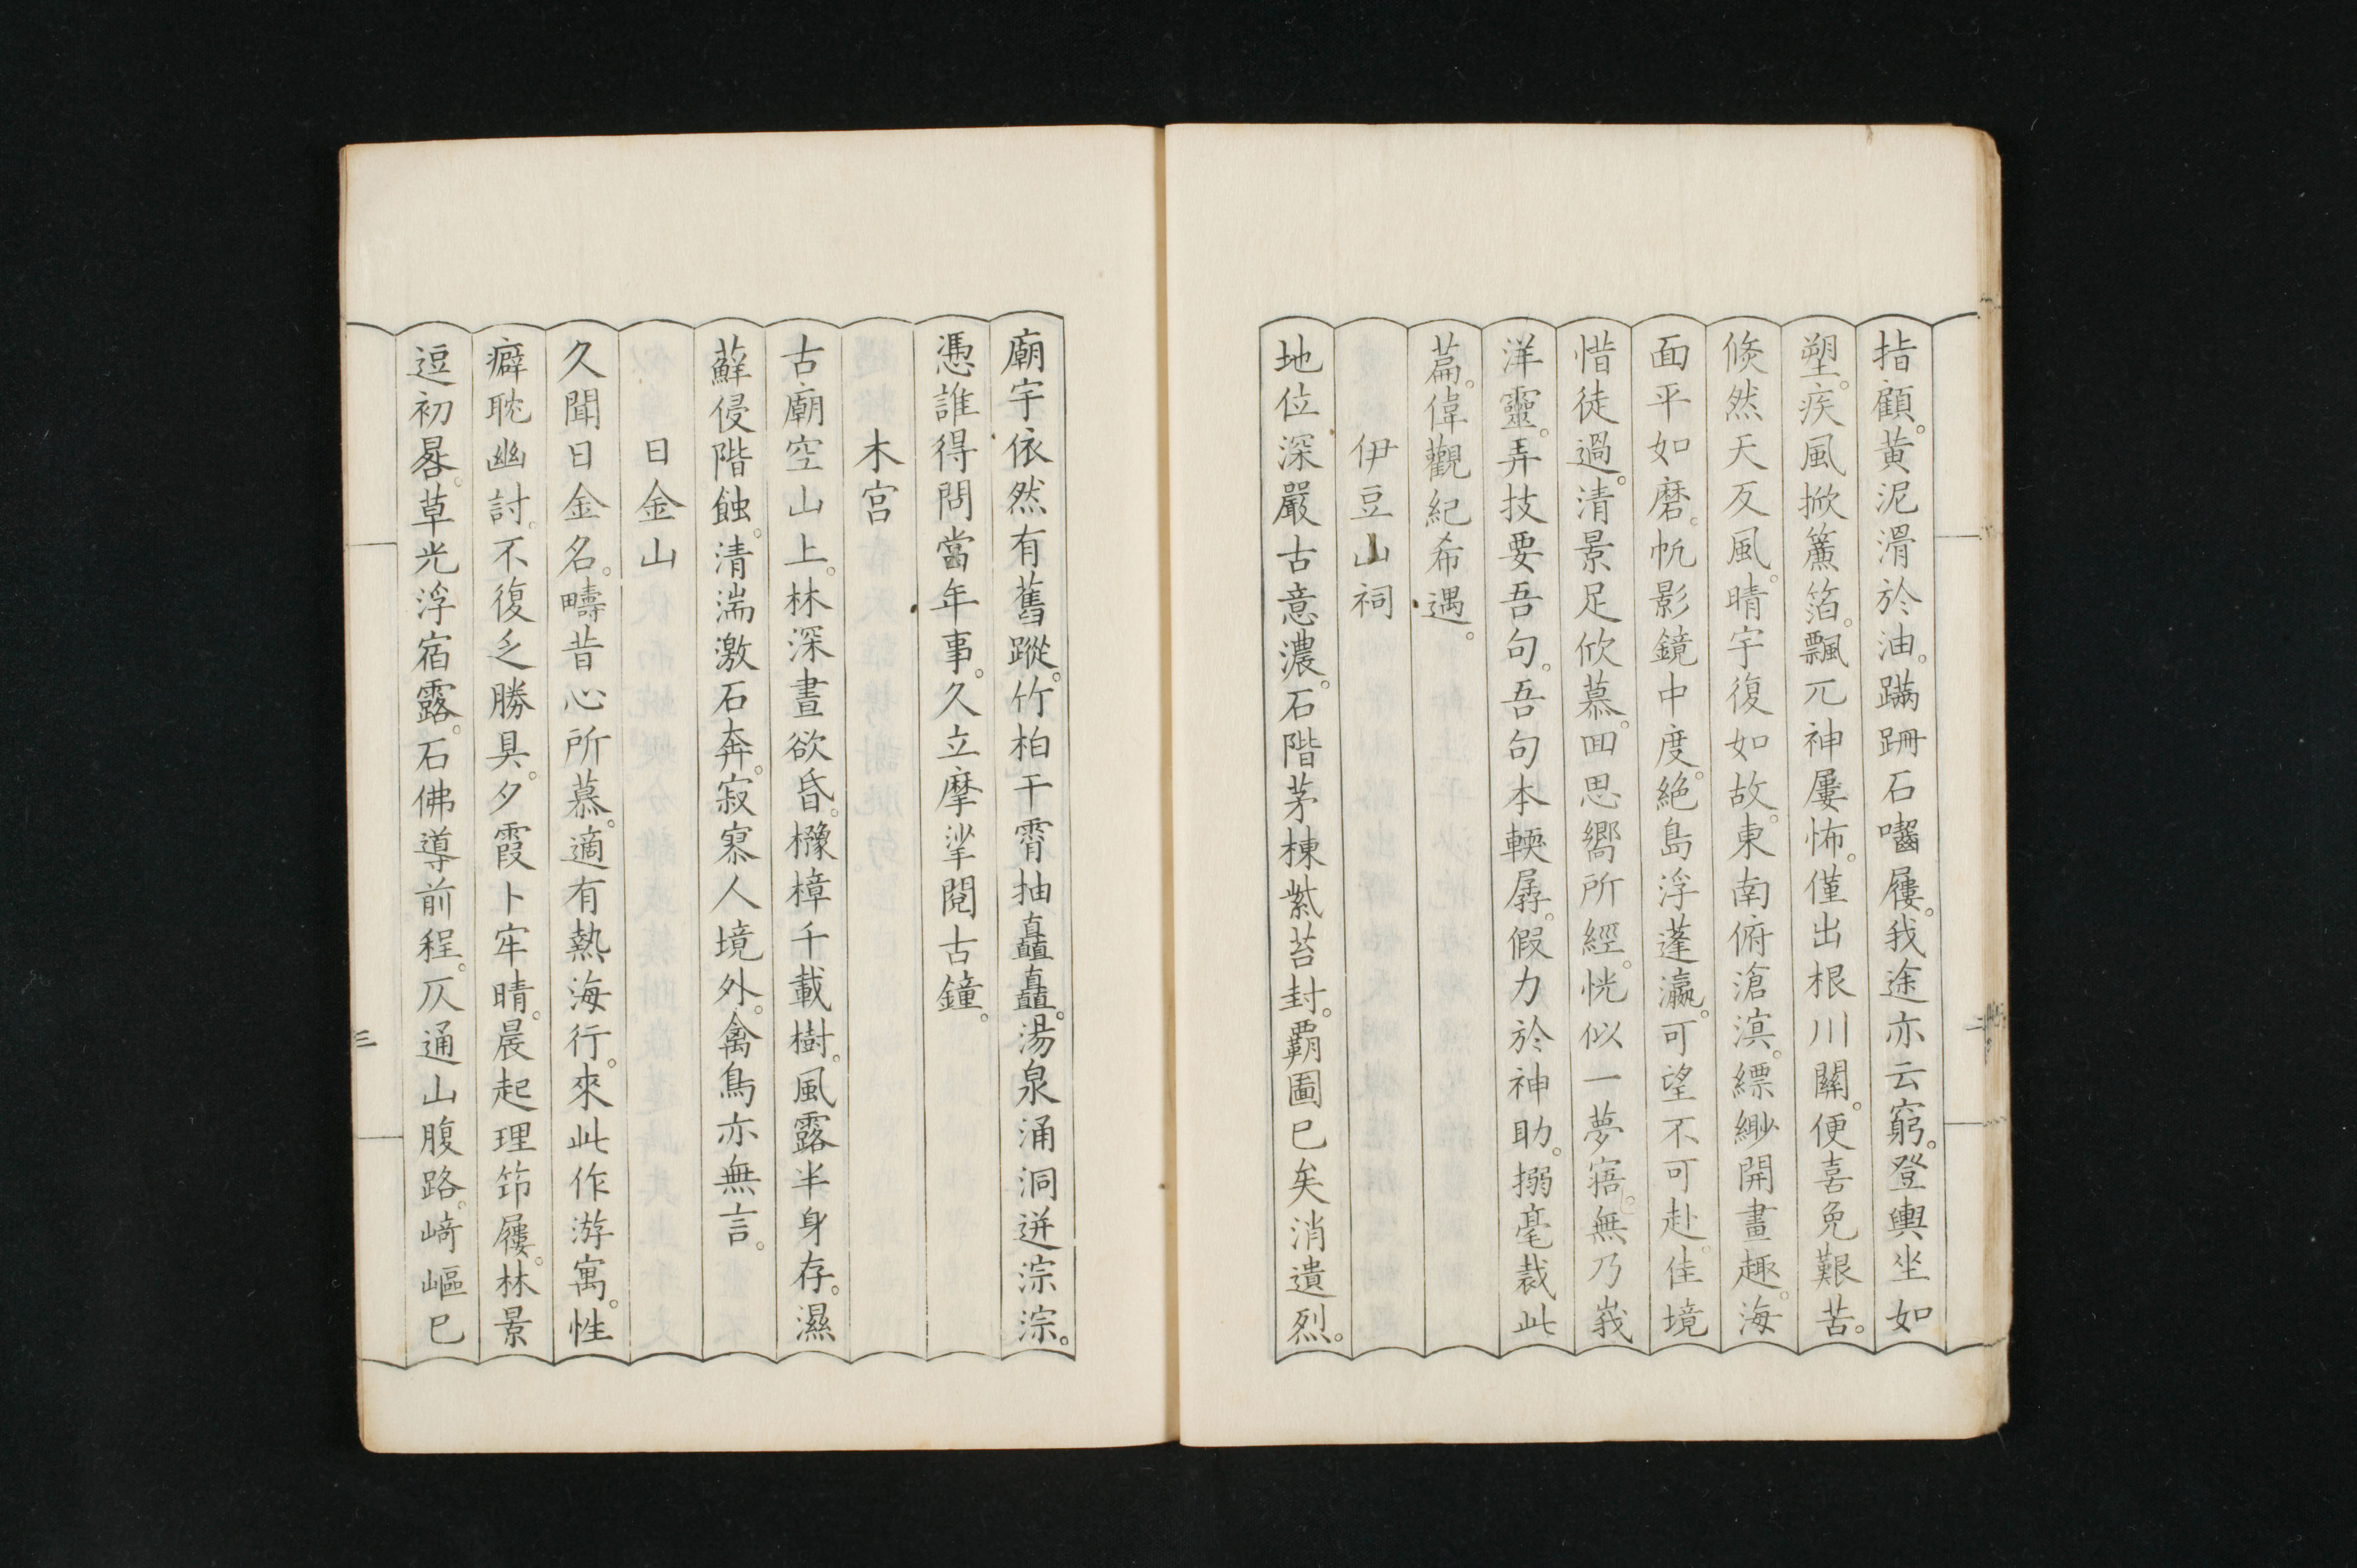 指顧。黄泥滑於油。蹣跚石囓屨。我途亦云窮。登輿坐如
塑。疾風掀簾箔。飄兀神屢怖。僅出根川關。便喜免艱苦。
倐然天反風。晴宇復如故。東南俯滄溟。縹緲開畫趣。海
面平如磨。帆影鏡中度。絶島浮蓬瀛。可望不可赴。佳境
惜徒過。清景足欣慕。回思嚮所經。恍似一夢寤。無乃峩
洋靈。弄技要吾句。吾句本輭孱。假力於神助。搦毫裁此
篇。偉觀紀希遇。
伊豆山祠
地位深嚴古意濃。石階茅棟紫苔封。覇圖已矣消遺烈。
廟宇依然有舊蹤。竹柏干霄抽矗矗。湯泉涌洞迸淙淙。
憑誰得問當年事。久立摩挲閱古鐘。
木宮
古廟空山上。林深晝欲昏。櫲樟千載樹。風露半身存。濕
蘚侵階蝕。清湍激石奔。寂寞人境外。禽鳥亦無言。
日金山
久聞日金名。疇昔心所慕。適有熱海行。來此作游寓。性
癖耽幽討。不復乏勝具。夕霞卜牢晴。晨起理筇屨。林景
逗初晷。草光浮宿露。石佛導前程。仄通山腹路。崎嶇已
二
三